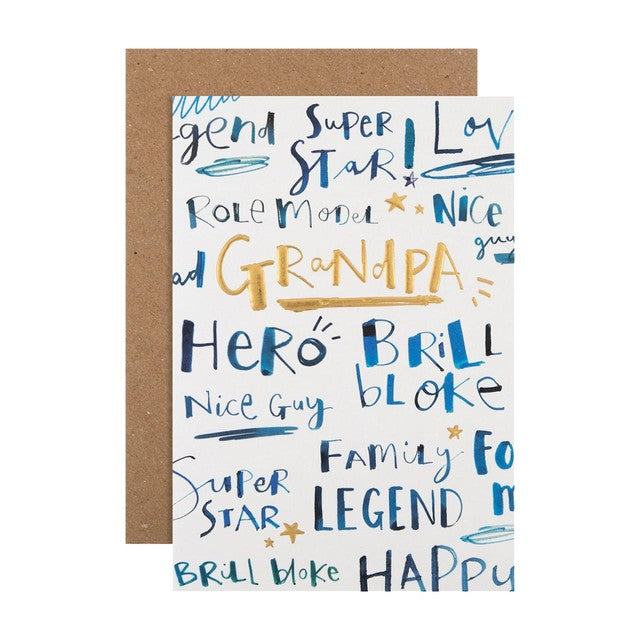 gend Super Star! Lov
Role Model Nice guy
ad Grandpa
Hero Brill bloke
Nice Guy
Super Star Family LEGEND Fo
Brill bloke HAPPY